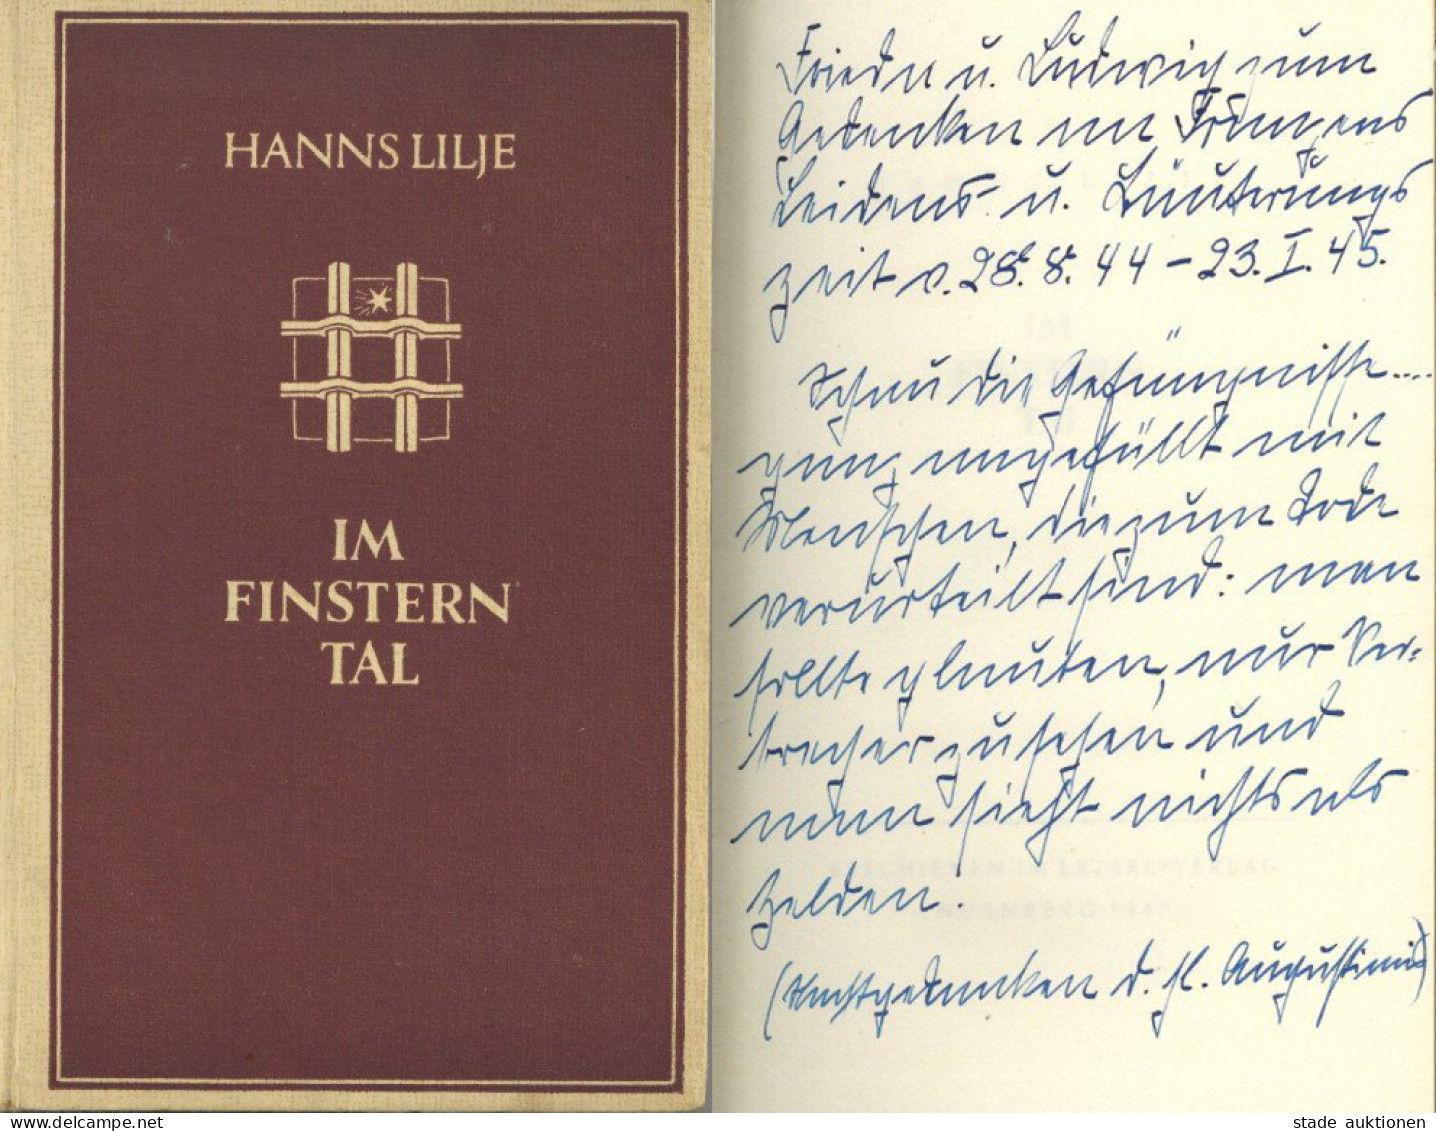 HANNS LILJE
IM
FINSTERN
TAL
Frieda u. Ludwig zum
Gedenken an Franzens
Leidens- u. Läuterungs
zeit v. 28. 8. 44 – 23. I. 45.
Schau die Gefängnisse....
ganz angefüllt mit
Menschen, die zum Tode
verurteilt sind: man
sollte glauben, nur Ver-
brecher zu sehen und
man sieht nichts als
Helden!
(Nachtgedanken d. hl. Augustinus)
IM
ERSCHIENEN IM LAETARE-VERLAG
NÜRNBERG
stade auktionen